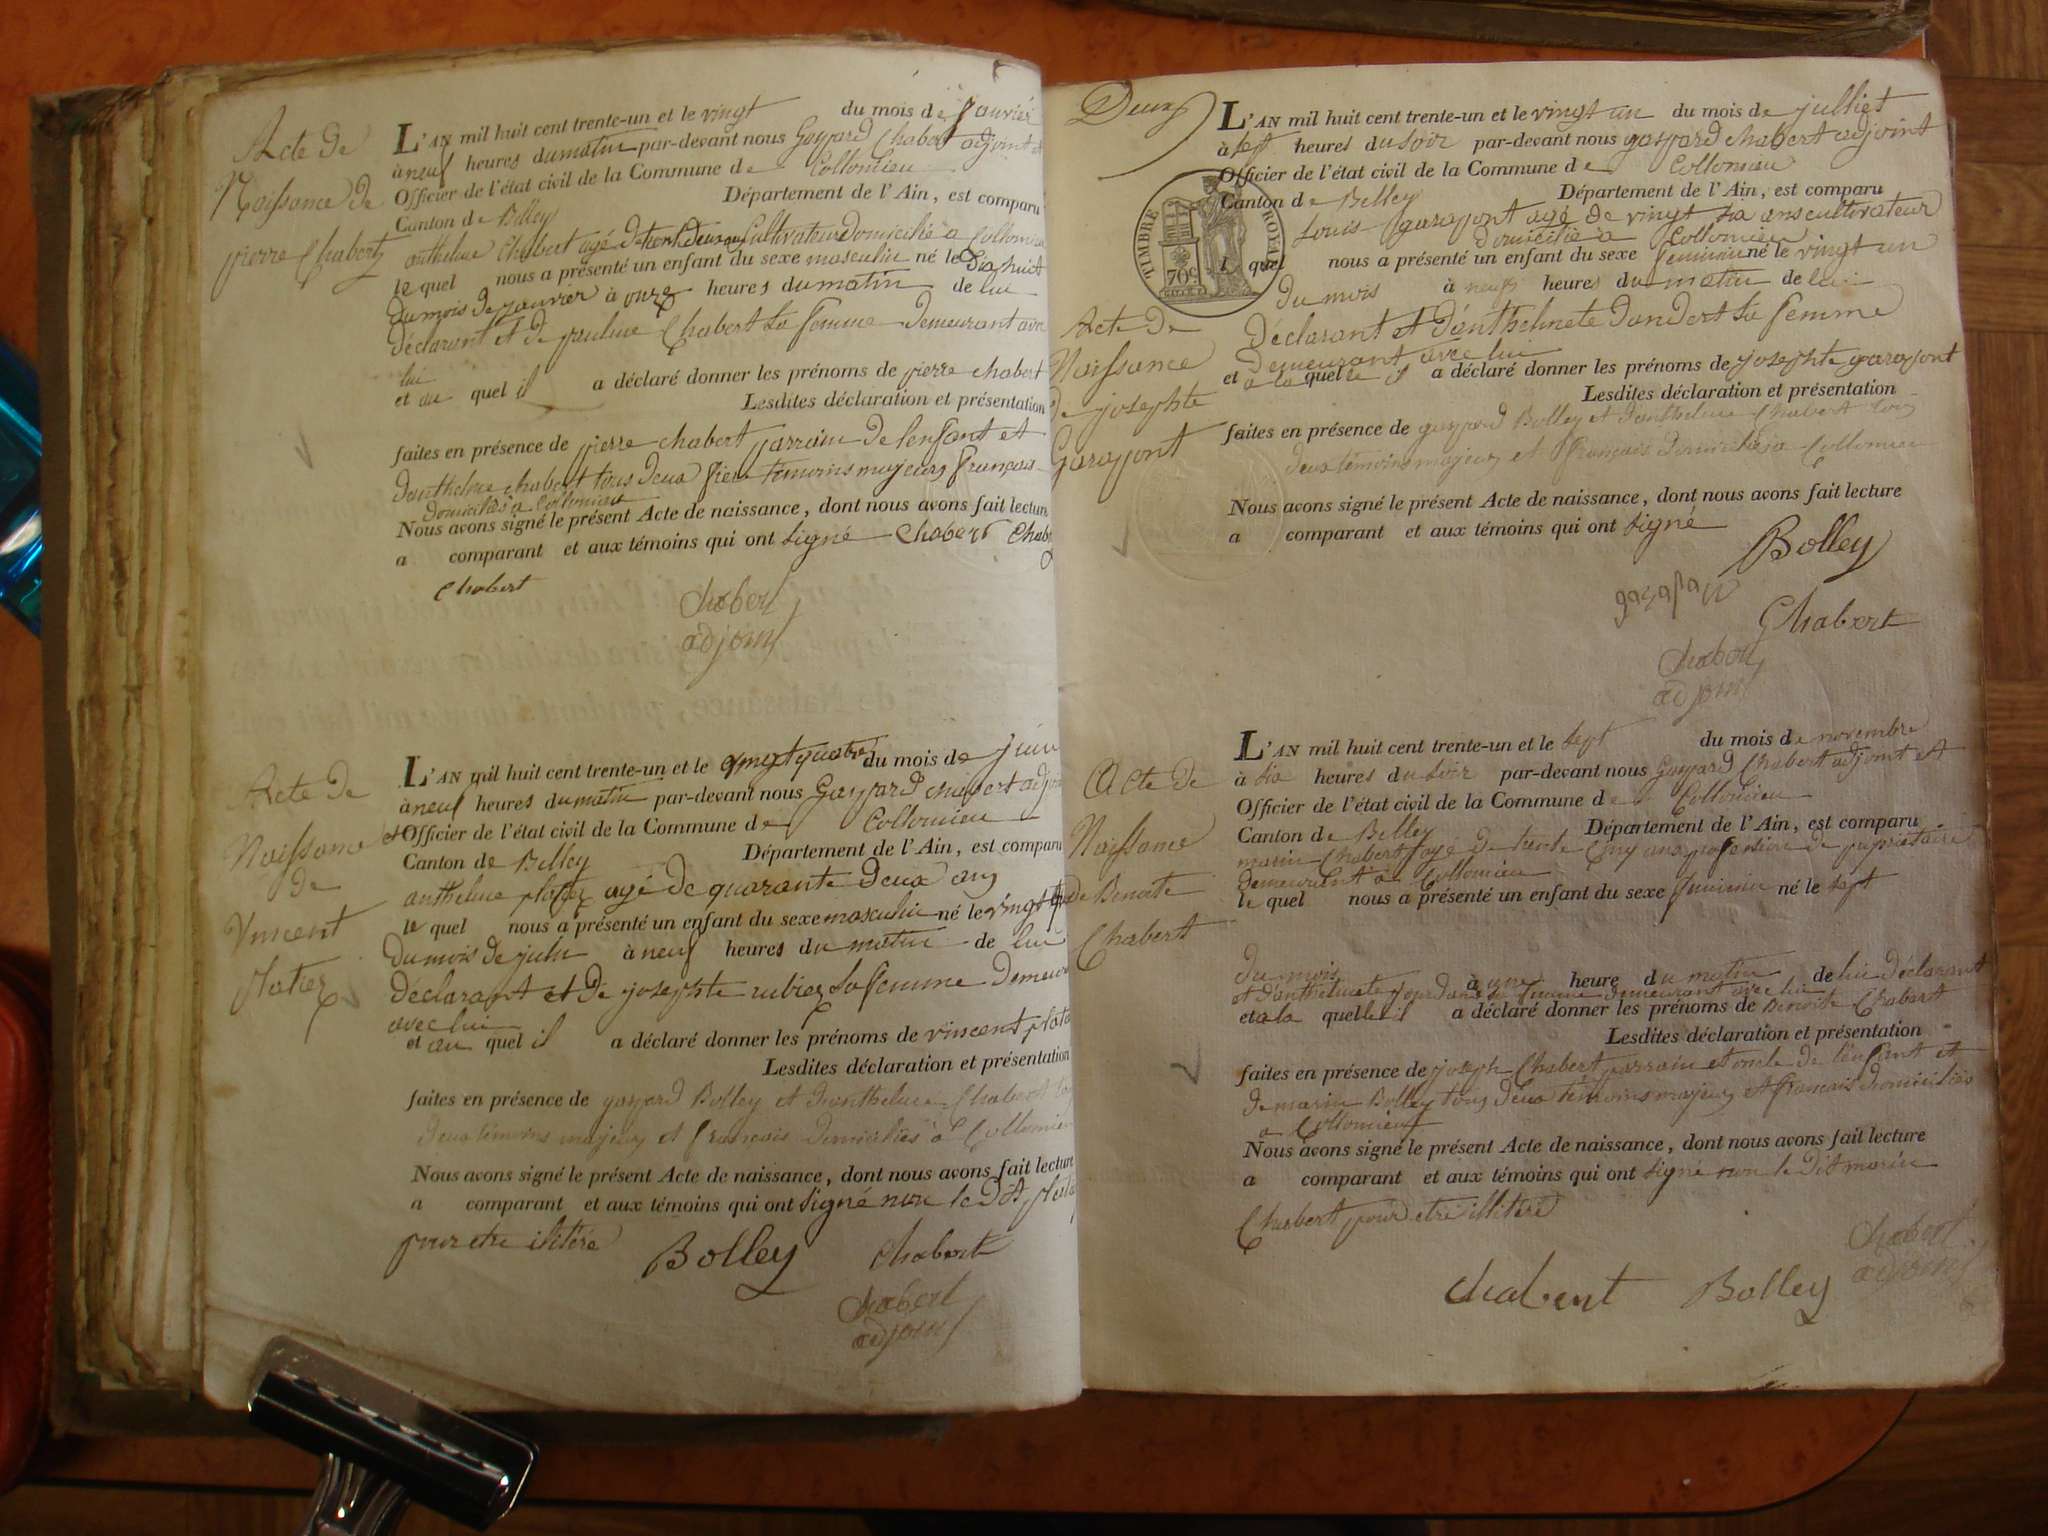 Acte de
Naissance de
pierre Chabert
L'AN mil huit cent trente-un et le vingt du mois de janvier
à neuf heures du matin par-devant nous Gaspard Chabert adjoint et
Officier de l'état civil de la Commune de Collomieu
Canton de Belley Département de l'Ain, est comparu
anthelme Chabert agé de trente deux ans Cultivateur domicilié a Collomieu
le quel nous a présenté un enfant du sexe masculin né le dix huit
du mois de janvier à onze heures du matin de lui
déclarant et de pauline Chabert sa femme demeurant avec
lui
et au quel il a déclaré donner les prénoms de pierre chabert
Lesdites déclaration et présentation
faites en présence de pierre chabert parrain de lenfant et
danthelme chabert tous deux témoins majeurs français
domiciliés a Collomieu
Nous avons signé le présent Acte de naissance, dont nous avons fait lecture
a comparant et aux témoins qui ont signé Chabert Chabert
Chabert
Chabert
adjoint
Acte de
Naissance
de
Vincent
platier
L'AN mil huit cent trente-un et le vingt quatre du mois de juin
à neuf heures du matin par-devant nous Gaspard chabert adjoint
et Officier de l'état civil de la Commune de Collomieu
Canton de Belley Département de l'Ain, est comparu
anthelme agé de quarante deux ans
le quel nous a présenté un enfant du sexe masculin né le vingt
du mois de juin à neuf heures du matin de lui
déclarant et de josephte rubier sa femme demeurant
avec lui
et au quel il a déclaré donner les prénoms de vincent
Lesdites déclaration et présentation
faites en présence de gaspard Bolley et danthelme Chabert tous
deux témoins majeurs et français domiciliés a Collomieu
Nous avons signé le présent Acte de naissance, dont nous avons fait lecture
a comparant et aux témoins qui ont signé non le dit
pour etre ilitéré
Bolley chabert
Chabert
adjoint
Deux
TIMBRE ROYAL
70c.
Acte de
Naissance
de josephte
Garapont
L'AN mil huit cent trente-un et le vingt un du mois de julliet
à sept heures du soir par-devant nous gaspard chabert adjoint
Officier de l'état civil de la Commune de Collomieu
Canton de Belley Département de l'Ain, est comparu
Louis garapont agé de vingt six ans cultivateur
domicilié a Collomieu
l quel nous a présenté un enfant du sexe feminin né le vingt un
du mois à neuf heures du matin de lui
déclarant et danthelmete dandert sa femme
demeurant avec lui
et a la quelle il a déclaré donner les prénoms de josephte garapont
Lesdites déclaration et présentation
faites en présence de gaspard Bolley et danthelme Chabert tous
deux témoins majeurs et français domiciliés a Collomieu
Nous avons signé le présent Acte de naissance, dont nous avons fait lecture
a comparant et aux témoins qui ont signé
Bolley
Chabert
Chabert
adjoint
Acte de
Naissance
de Benoite
Chabert
L'AN mil huit cent trente-un et le sept du mois de novembre
à six heures du soir par-devant nous Gaspard Chabert adjoint et
Officier de l'état civil de la Commune de Collomieu
Canton de Belley Département de l'Ain, est comparu
marin Chabert agé de trente cinq ans profession de propriétaire
demeurent a Collomieu
le quel nous a présenté un enfant du sexe feminin né le sept
du mois à une heure du matin de lui déclarant
et danthelmete jourdan sa femme demeurant avec lui
et a la quelle il a déclaré donner les prénoms de Benoite Chabert
Lesdites déclaration et présentation
faites en présence de joseph Chabert parrain et oncle de lenfant et
de marin Bolley tous deux témoins majeurs et français domiciliés
a Collomieu
Nous avons signé le présent Acte de naissance, dont nous avons fait lecture
a comparant et aux témoins qui ont signé non le dit marin
Chabert pour etre illitéré
Chabert
adjoint
Chabert Bolley